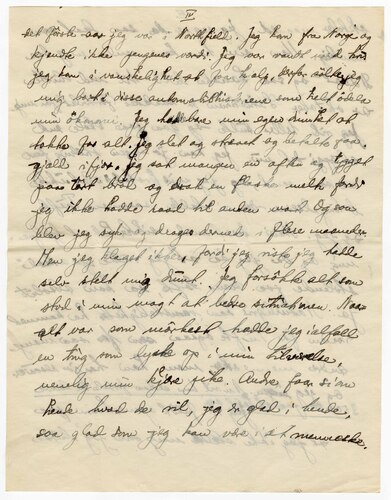 IV
det første aar jeg var i Northfield. Jeg kom fra Norge og
kjendte ikke pengenes verdi. Jeg var vant med
jeg kom i vanskelighet at for salg, derfor
mig bort i disse som helt ødela
min økonomi. Jeg har bare min egen dumhet at
takke for alt. Jeg slet og strævet og betalte paa
gjæld i fjor, jeg sat mangen en aften og tygget
paa tørt brød og drak en flaske melk fordi
jeg ikke hadde raad til anden mat. Og saa
blev jeg syk og droges dermed i flere maaneder
Men jeg klaget ikke, fordi jeg visste jeg hadde
selv stelt mig dumt. Jeg forsøkte alt som
stod i min magt at bedre situationen. Naar
alt var som mørkest hadde jeg ialfall
en ting som lyste op i min tilværelse
nemlig min kjære pike. Andre faar si om
hende hvad de vil, jeg er glad i hende,
saa glad som jeg kan være i et menneske.